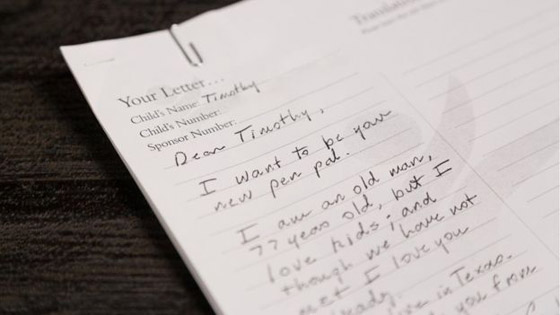 Translation
Your Letter...
Child's Name: Timothy
Child's Number:
Sponsor Number:
Dear Timothy,
I want to be your
new pen pal.
I am an old man,
77 years old, but I
love kids; and
though we have not
met I love you
already.
live in Texas.
you from